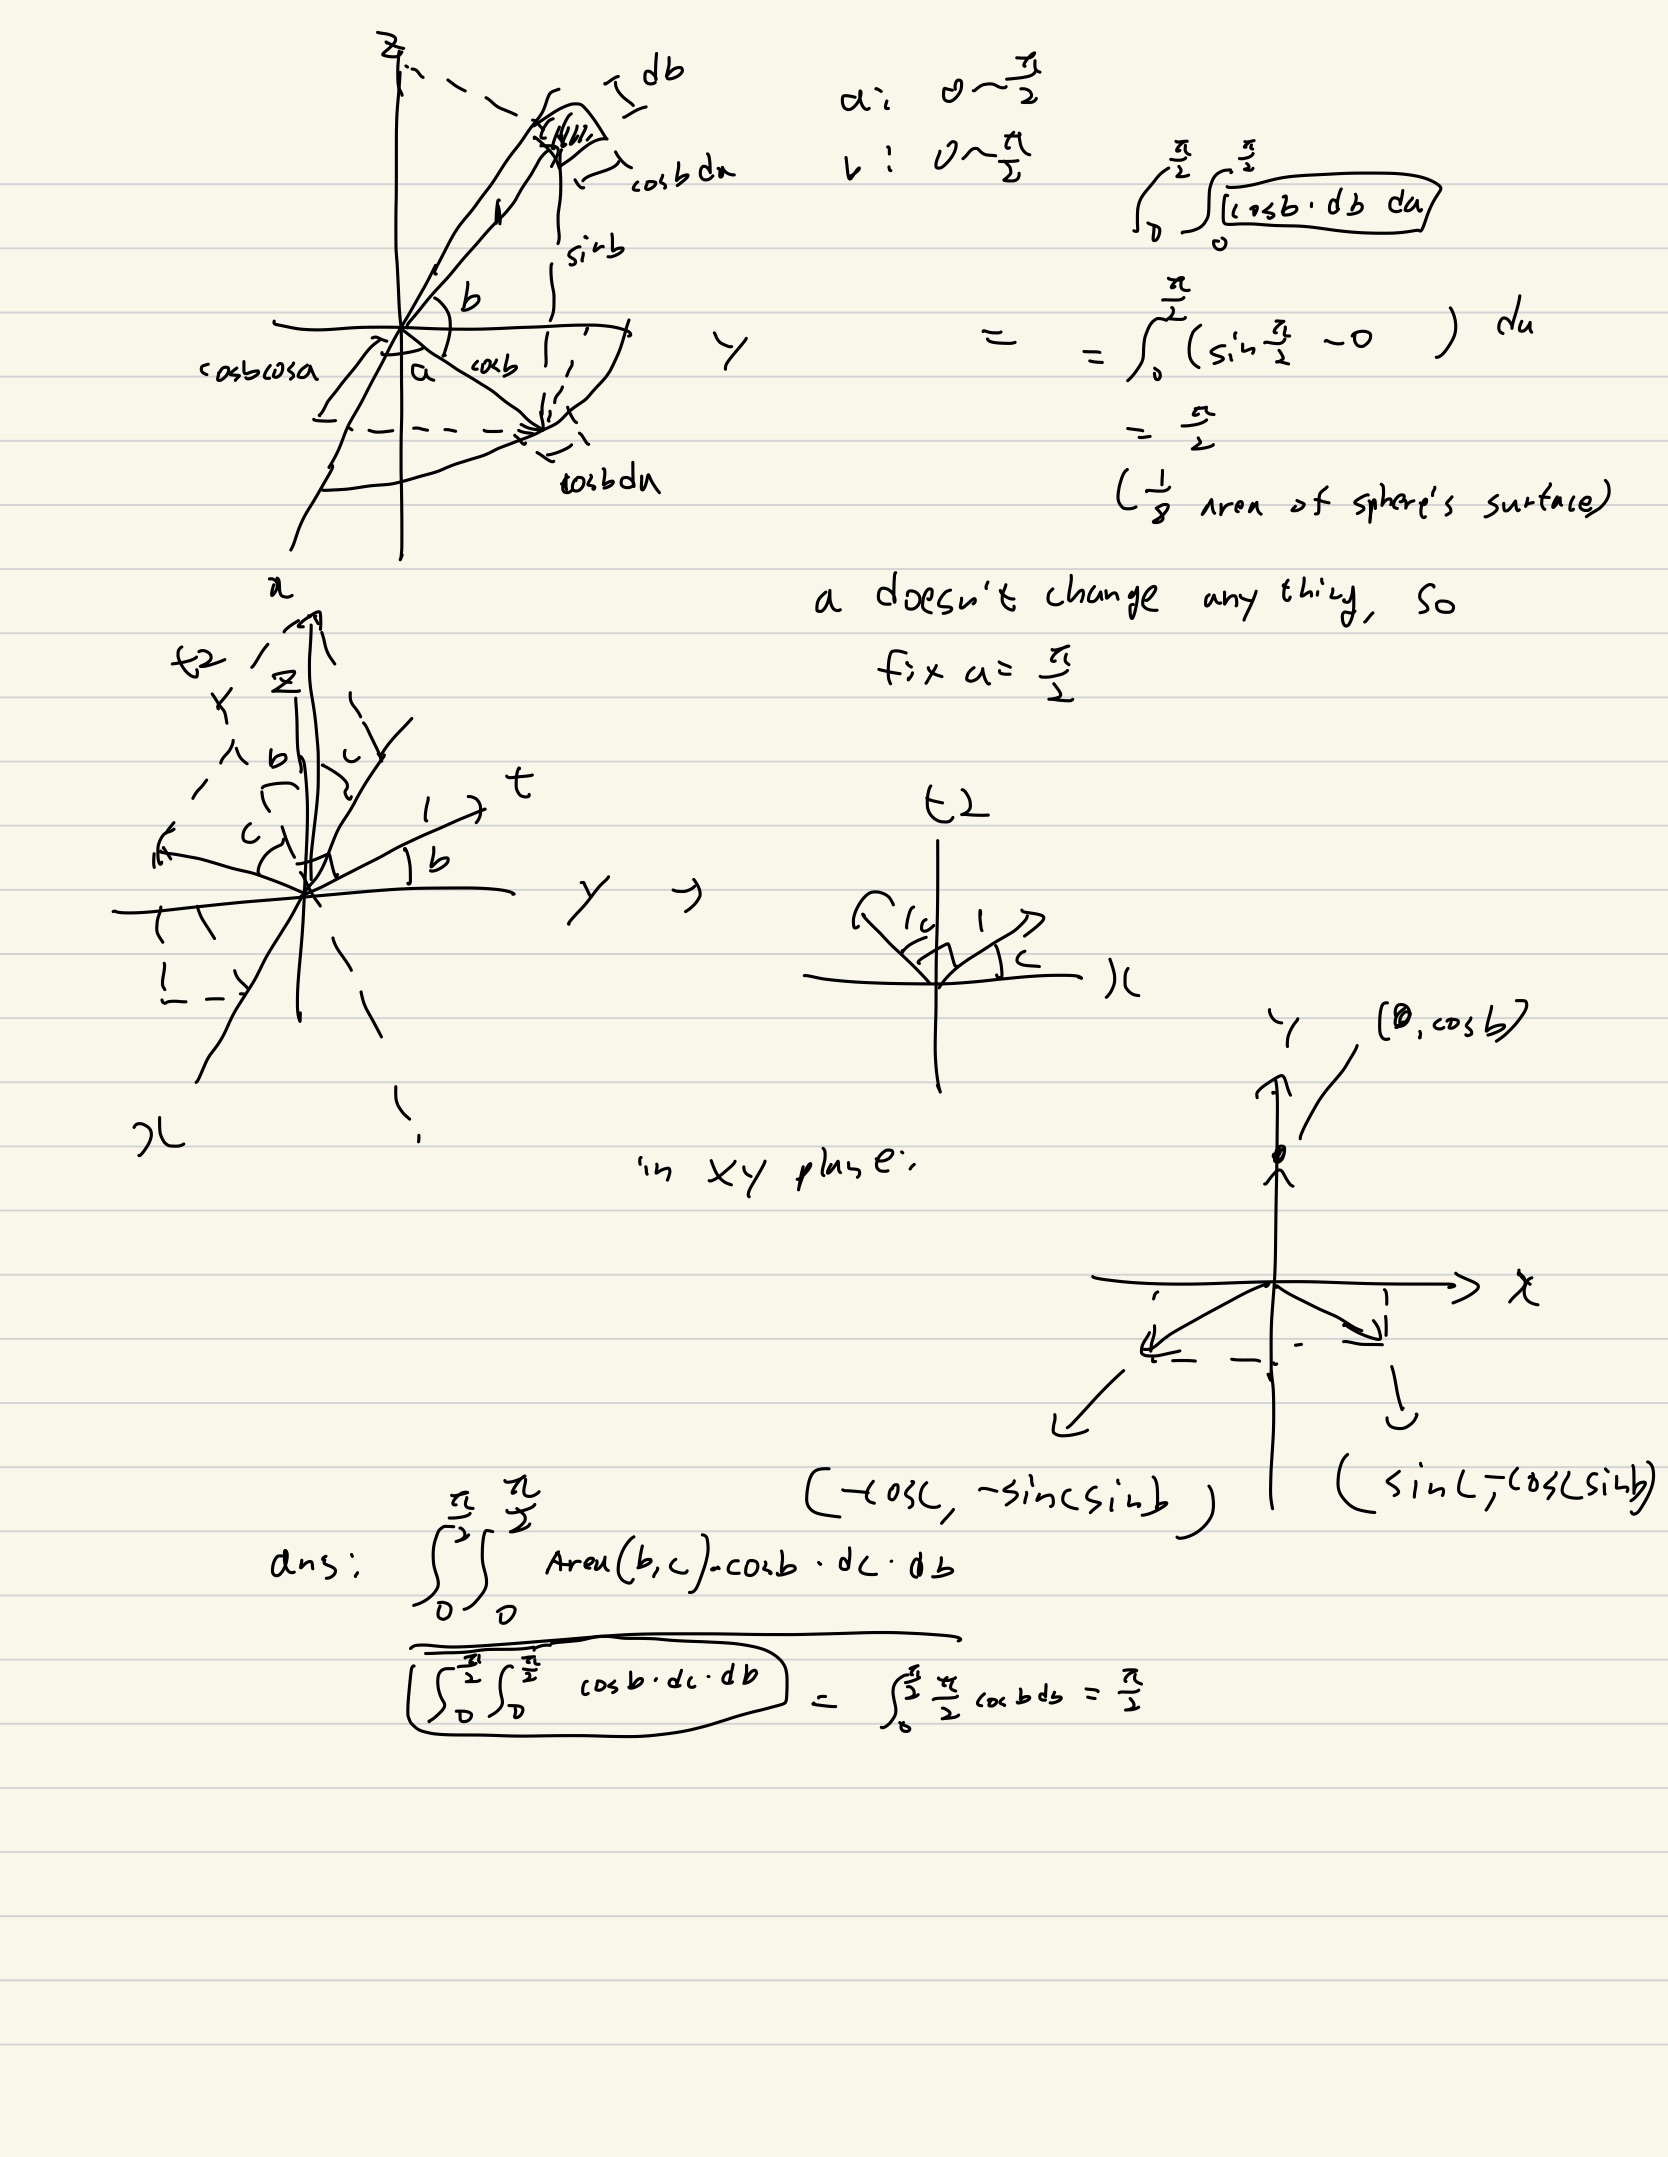 z
db
cosb da
1
sinb
b
cosbcosa
a
cosb
cosb da
y
x
a: 0~π/2
b: 0~π/2
∫₀^{π/2} ∫₀^{π/2} cosb · db da
= = ∫₀^{π/2} (sin π/2 - 0) da
= π/2
(1/8 area of sphere's surface)
a doesn't change any thing, so
fix a = π/2
t2
z
b
c
c
t
1
b
y →
x
t2
1
c
1
c
x
in xy plane:
y
(0, cosb)
x
(-cosc, -sincsinb)
(sinc, -coscsinb)
ans: ∫₀^{π/2} ∫₀^{π/2} Area(b,c)·cosb · dc · db
∫₀^{π/2} ∫₀^{π/2} cosb · dc · db = ∫₀^{π/2} π/2 cosb db = π/2